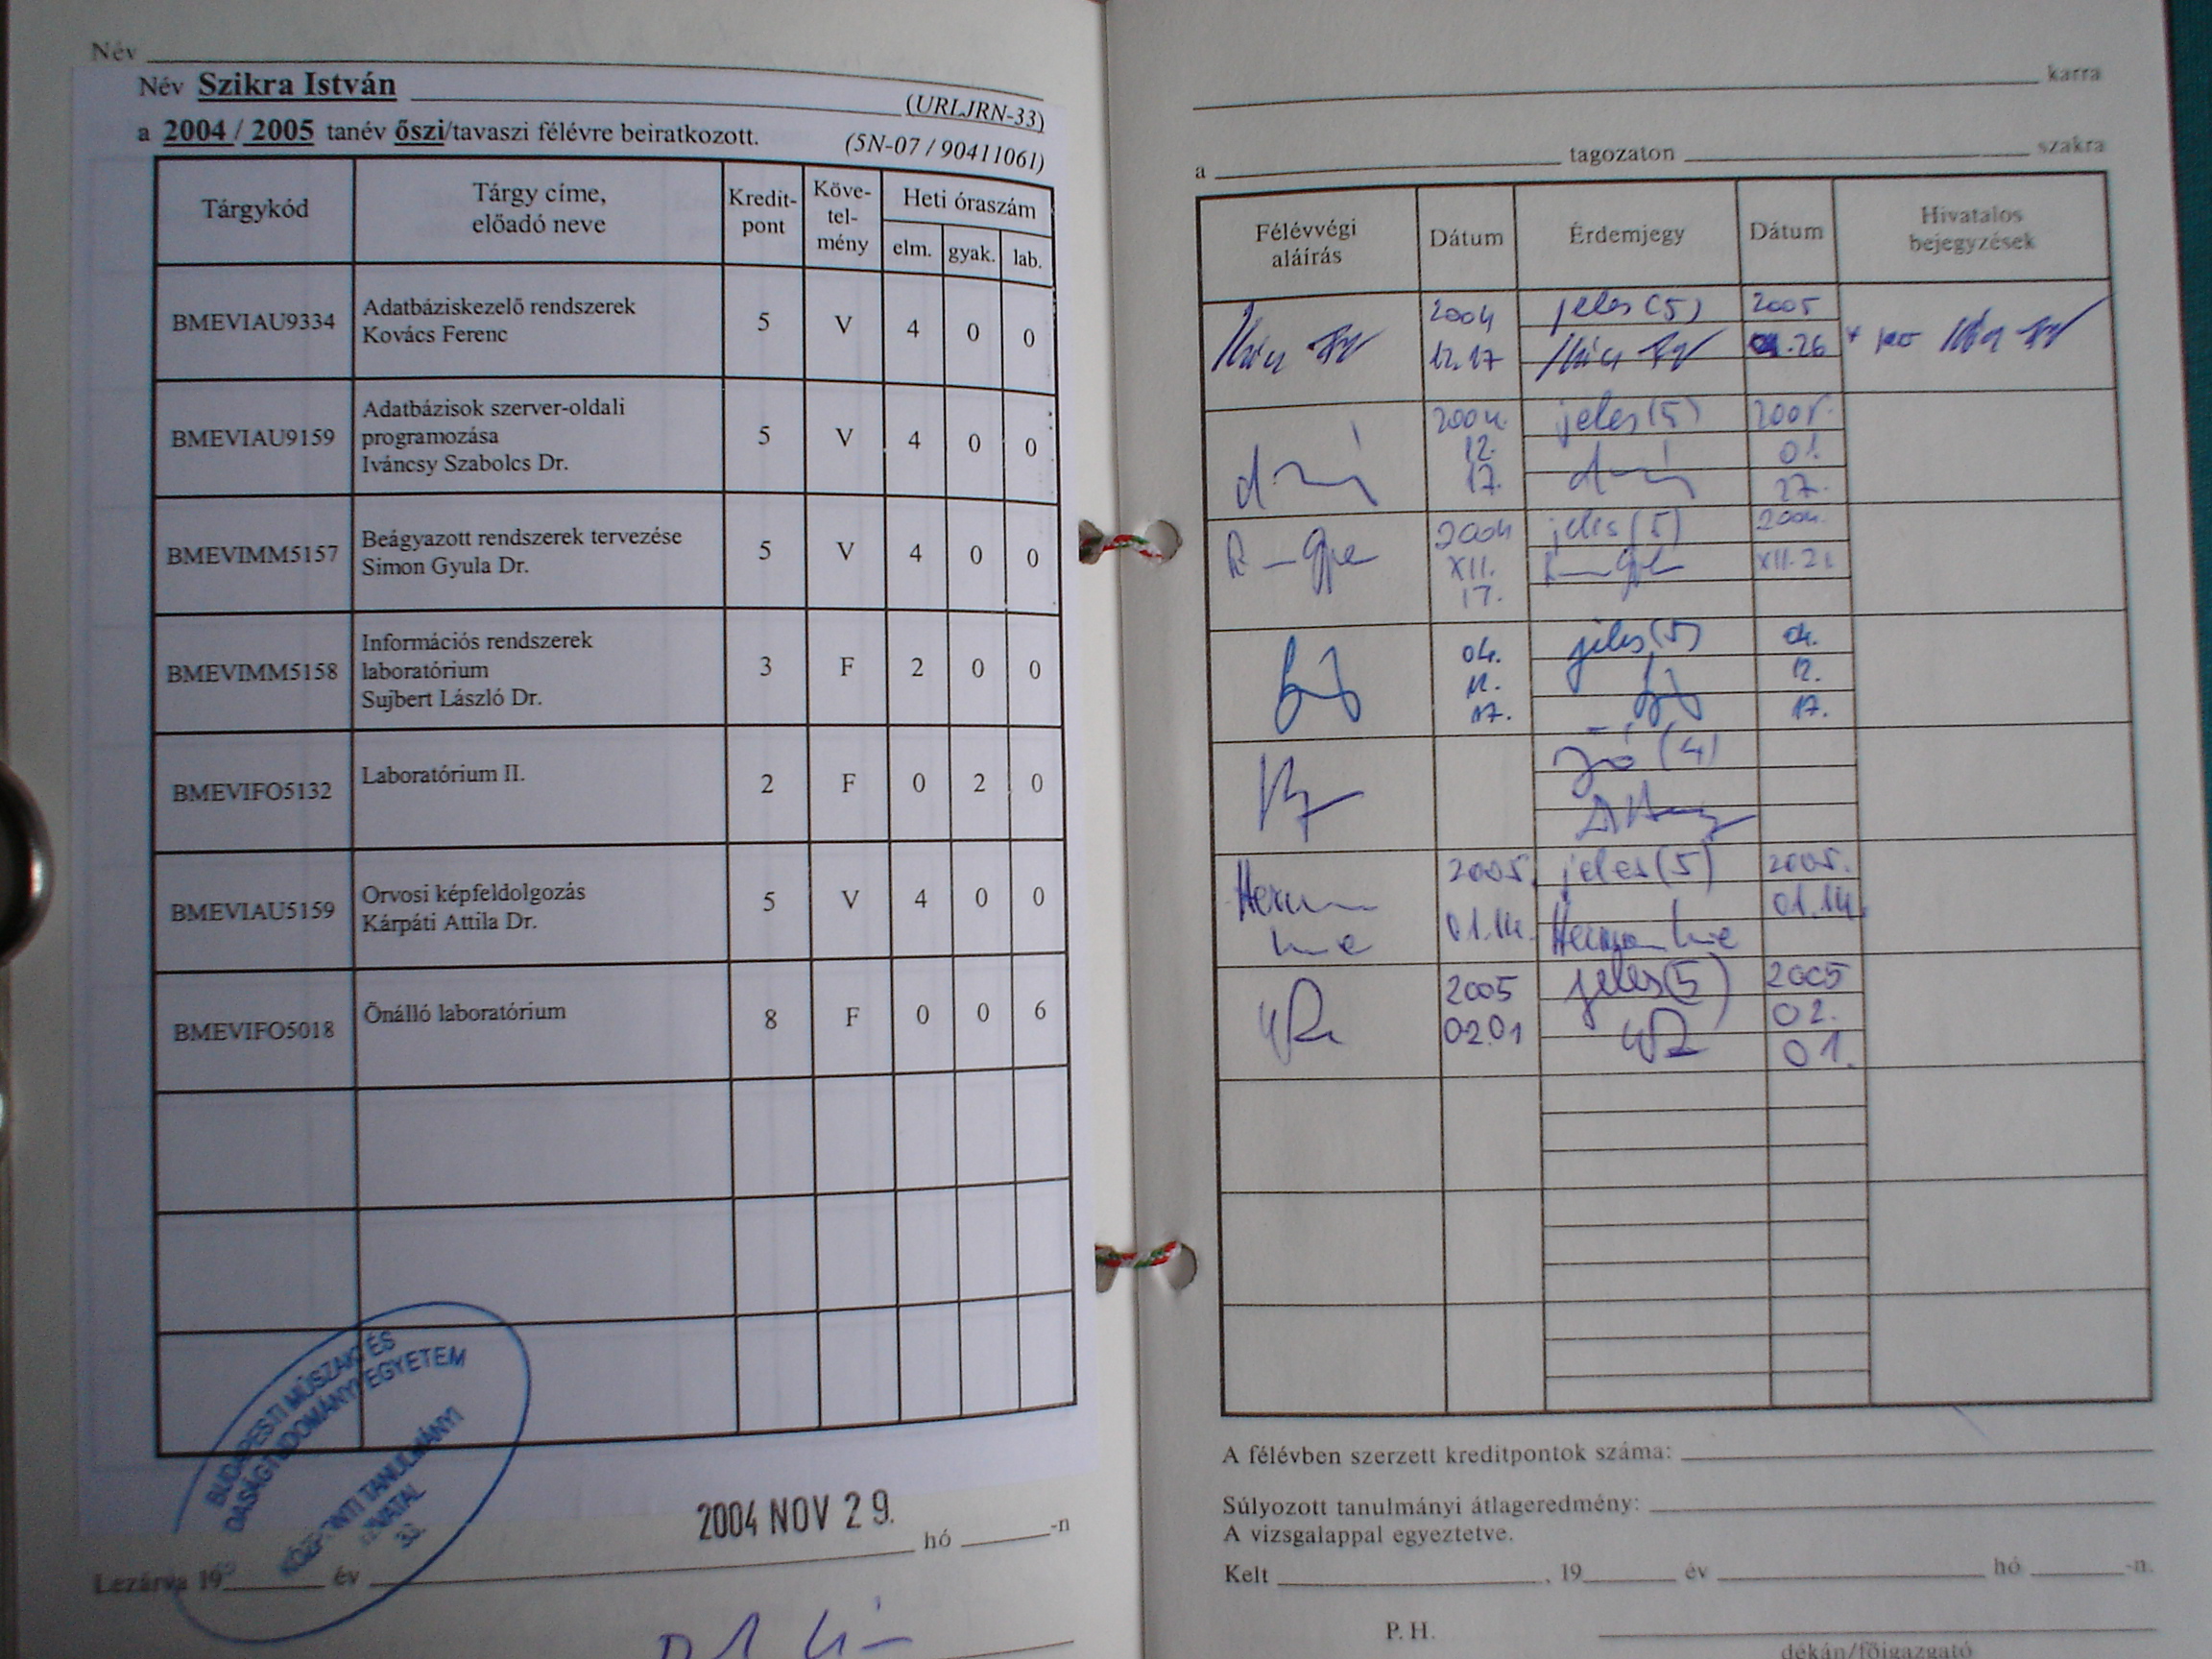 Név
Név Szikra István
(URLJRN-33)
a 2004 / 2005 tanév őszi/tavaszi félévre beiratkozott.
(5N-07 / 90411061)
Tárgykód
Tárgy címe,
előadó neve
Kredit-
pont
Köve-
tel-
mény
Heti óraszám
elm. gyak. lab.
BMEVIAU9334
Adatbáziskezelő rendszerek
Kovács Ferenc
5 V 4 0 0
BMEVIAU9159
Adatbázisok szerver-oldali
programozása
Iváncsy Szabolcs Dr.
5 V 4 0 0
BMEVIMM5157
Beágyazott rendszerek tervezése
Simon Gyula Dr.
5 V 4 0 0
BMEVIMM5158
Információs rendszerek
laboratórium
Sujbert László Dr.
3 F 2 0 0
BMEVIFO5132
Laboratórium II.
2 F 0 2 0
BMEVIAU5159
Orvosi képfeldolgozás
Kárpáti Attila Dr.
5 V 4 0 0
BMEVIFO5018
Önálló laboratórium
8 F 0 0 6
BUDAPESTI MŰSZAKI ÉS
TUDOMÁNYI EGYETEM
KÖZPONTI TANULMÁNYI
HIVATAL
33.
2004 NOV 29.
Lezárva 19 év hó -n
karra
a tagozaton szakra
Félévvégi
aláírás
Dátum
Érdemjegy
Dátum
Hivatalos
bejegyzések
2004 jeles (5) 2005
12.17 .26
2004. jeles (5) 2005.
12. 01.
17. 27.
2004 jeles (5) 2004.
XII. XII. 21
17.
04. jeles (5) 04.
12. 12.
17. 17.
Jó (4)
2005. jeles (5) 2005.
01.14. 01.14.
2005 jeles (5) 2005
02.01 02.
01.
A félévben szerzett kreditpontok száma:
Súlyozott tanulmányi átlageredmény:
A vizsgalappal egyeztetve.
Kelt , 19 év hó -n.
P. H.
dékán/főigazgató